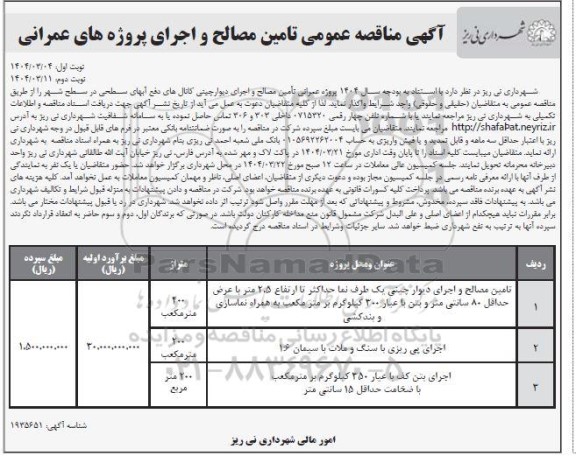 شهرداری نی ریز
آگهی مناقصه عمومی تامین مصالح و اجرای پروژه های عمرانی
نوبت اول: ۱۴۰۴/۰۳/۰۴
نوبت دوم: ۱۴۰۴/۰۳/۱۱
شهرداری نی ریز در نظر دارد با استناد به بودجه سال ۱۴۰۴ پروژه عمرانی تأمین مصالح و اجرای دیوارچینی کانال های دفع آبهای سطحی در سطح شهر را از طریق
مناقصه عمومی به متقاضیان (حقیقی و حقوقی) واجد شرایط واگذار نماید. لذا از کلیه متقاضیان دعوت به عمل می آید از تاریخ نشر آگهی جهت دریافت اسناد مناقصه و اطلاعات
تکمیلی به شهرداری نی ریز مراجعه نمایند یا با شماره تلفن چهار رقمی ۰۷۱۵۳۲۰ داخلی ۳۰۲ و ۳۰۶ تماس حاصل نموده یا به سامانه شفافیت شهرداری نی ریز به آدرس
http://shafafiat.neyriz.ir مراجعه نمایند. متقاضیان می بایست مبلغ سپرده شرکت در مناقصه را به صورت ضمانتنامه بانکی معتبر در فرم های قابل قبول در وجه شهرداری نی
ریز با اعتبار حداقل سه ماهه و قابل تمدید و یا فیش واریزی به حساب ۰۱۰۵۶۹۲۲۶۲۰۰۴ بانک ملی شعبه احمد نی ریزی بنام شهرداری نی ریز به همراه اسناد مناقصه به شهرداری
ارائه نماید. متقاضیان میبایست کلیه اسناد را تا پایان وقت اداری مورخ ۱۴۰۴/۰۳/۲۱ در پاکت لاک و مهر شده به آدرس فارس، نی ریز خیابان آیت اله طالقانی شهرداری نی ریز واحد
دبیرخانه محرمانه تحویل نمایند. جلسه کمیسیون عالی معاملات در ساعت ۱۲ صبح مورخ ۱۴۰۴/۰۳/۲۲ در محل شهرداری برگزار خواهد شد. حضور متقاضیان یا یک نفر به نمایندگی
از طرف آنها با ارائه معرفی نامه رسمی در جلسه کمیسیون مجاز بوده و دعوت دیگری از متقاضیان، اعضای اصلی، ناظر و مهمان کمیسیون معاملات به عمل نخواهد آمد. کلیه هزینه های
نشر آگهی به عهده برنده مناقصه می باشد. پرداخت کلیه کسورات قانونی به عهده برنده مناقصه خواهد بود. شرکت در مناقصه و دادن پیشنهادات به منزله قبول شرایط و تکالیف شهرداری
می باشد. به پیشنهادات فاقد سپرده، مخدوش، مشروط و پیشنهاداتی که بعد از مهلت مقرر واصل شود ترتیب اثر داده نخواهد شد. شهرداری در رد یا قبول پیشنهادات مختار می باشد.
برابر مقررات نباید هیچکدام از اعضای اصلی و علی البدل شرکت مشمول قانون منع مداخله کارکنان دولت باشد. در صورتی که برندگان اول، دوم و سوم حاضر به انعقاد قرارداد نگردند
سپرده آنها به ترتیب به نفع شهرداری ضبط خواهد شد. سایر جزئیات و شرایط در اسناد مناقصه درج گردیده است.
ردیف عنوان و محل پروژه متراژ مبلغ برآورد اولیه (ریال) مبلغ سپرده (ریال)
۱ تامین مصالح و اجرای دیوار چینی یک طرف نما حداکثر تا ارتفاع ۲.۵ متر با عرض
حداقل ۸۰ سانتی متر و بتن با عیار ۳۰۰ کیلوگرم بر متر مکعب به همراه نماسازی
و بندکشی
مترمکعب
۲ اجرای پی ریزی با سنگ و ملات با سیمان ۱:۶ ۲۰۰ مترمکعب ۳۰.۰۰۰.۰۰۰.۰۰۰ ۱.۵۰۰.۰۰۰.۰۰۰
۳ اجرای بتن کف با عیار ۲۵۰ کیلوگرم بر مترمکعب
با ضخامت حداقل ۱۵ سانتی متر
۲۰۰ متر مربع
ParsNamadData
پایگاه اطلاع رسانی مناقصه و مزایده
۰۲۱-۸۸۳۴۹۶۷۰-۵
شناسه آگهی: ۱۹۳۵۶۵۱
امور مالی شهرداری نی ریز